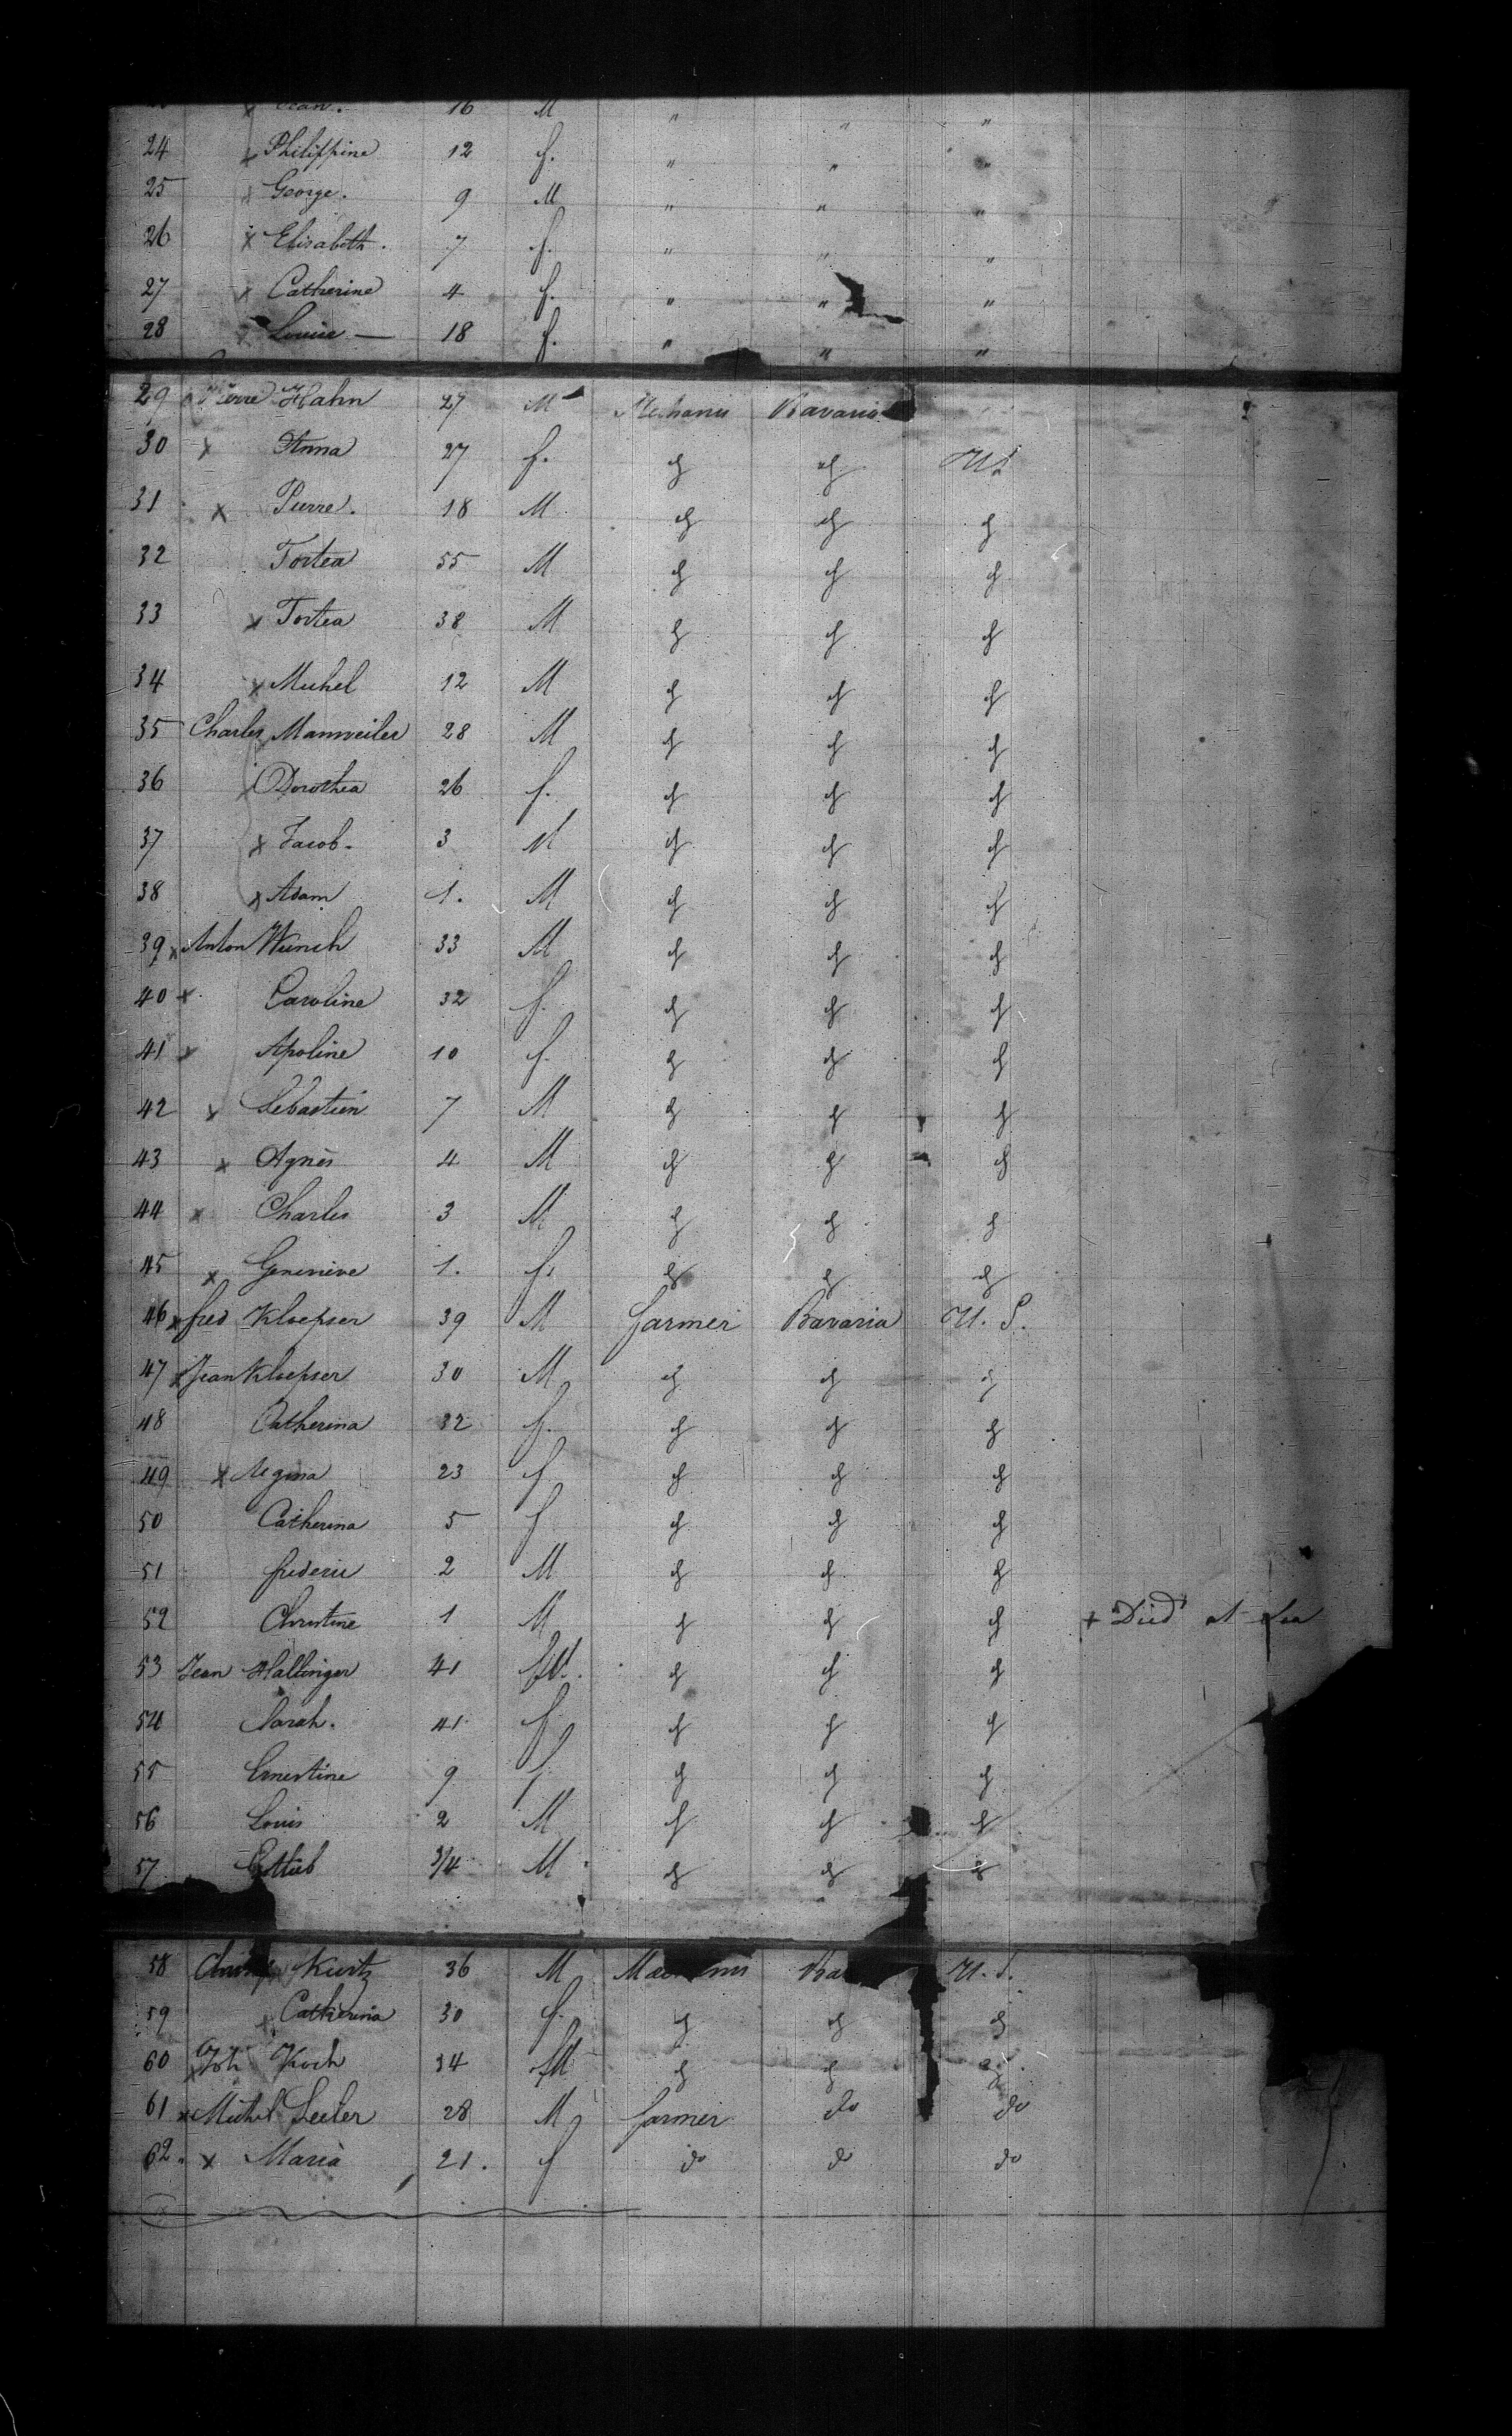 Jean. 16 M " " "
24 x Philippine 12 f. " " "
25 x George. 9 M " " "
26 x Elisabeth. 7 f. " " "
27 x Catherine 4 f. " " "
28 x Louise — 18 f. " " "
29 x Pierre Hahn 27 M Mechanic Bavaria
30 x Anna 27 f. do do U S
31 x Pierre. 18 M do do do
32 Tortea 55 M do do do
33 x Tortea 38 M do do do
34 x Michel 12 M do do do
35 Charles Manweiler 28 M do do do
36 x Dorothea 26 f. do do do
37 x Jacob. 3 M do do do
38 x Adam 1. M do do do
39 x Anton Wunch 33 M do do do
40 x Caroline 32 f. do do do
41 x Apoline 10 f. do do do
42 x Sebastien 7 M do do do
43 x Agnès 4 M do do do
44 x Charles 3 M do do do
45 x Genevieve 1. f. do do do
46 x fred Kloepser 39 M farmer Bavaria U. S.
47 x Jean Kloepser 30 M do do do
48 Catherina 32 f. do do do
49 x Regina 23 f do do do
50 Catherina 5 f do do do
51 frederic 2 M do do do
52 Christine 1 M do do do + Died at Sea
53 Jean Hallinger 41 M. do do do
54 Sarah. 41 f do do do
55 Ernestine 9 f do do do
56 Louis 2 M do do do
57 Gottlieb 3/4 M do do do
58 Kurtz 36 M U. S.
59 x Catherina 30 f. do do do
60 x Joh Koch 34 M do do do
61 x Michel Seeler 28 M farmer do do
62. x Maria 21. f do do do